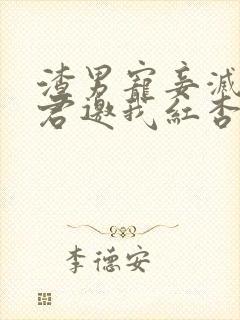 渣男寵妾滅
君邀我紅杏
李德安